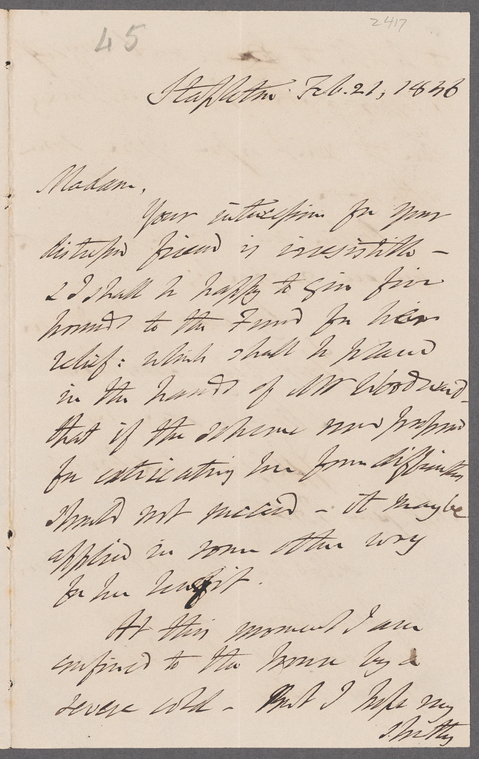 45
2417
Stapleton Feb. 21, 1846
Madam,
Your intercession for your
distressed friend is irresistible –
& I shall be happy to give five
pounds to the Fund for her
relief: which shall be placed
in the hands of Mr Woodward –
that if the scheme now proposed
for extricating her from difficulties
should not succeed – it may be
applied in some other way
for her benefit.
At this moment I am
confined to the house by a
severe cold – But I hope my
shortly